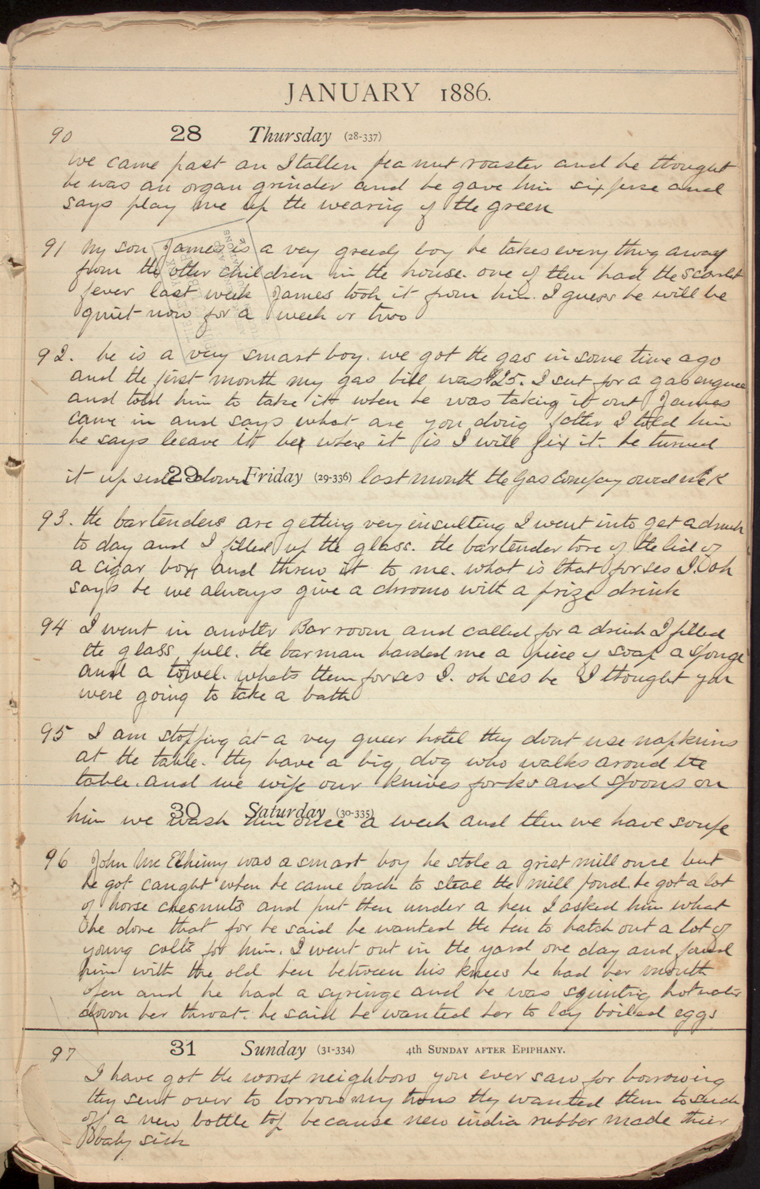 JANUARY 1886.
90 28 Thursday (28-337)
we came past an Italien pea nut roaster and he thought
he was an organ grinder and he gave him sixpense and
says play me up the wearing of the green
91 My son James is a very greedy boy he takes every thing away
from the other children in the house. one of them had the scarlet
fever last week James took it from him. I guess he will be
quiet now for a week or two
92. he is a very smart boy. we got the gas in some time ago
and the first month my gas bill was $25. I sent for a gas
and told him to take it when he was taking it out James
came in and says what are you doing father I told him
he says leeave it where it is I will fix it. he turned
it up side down 29 Friday (29-336) last month the Gas Company owed
93. the bartenders are getting very insulting I went into get a drink
to day and I filled up the glass. the bartender tore of the lid of
a cigar box and threw it to me. what is that for ses I. oh
says he we always give a chromo with a prize drink
94 I went in another Bar room and called for a drink I filled
the glass full. the barman handed me a piece of soap a sponge
and a towel. whats them for ses I. oh ses he I thought you
were going to take a bath
95 I am stopping at a very queer hotel they dont use napkins
at the table. they have a big dog who walks around the
table. and we wipe our knives forks and spoons on
30 Saturday (30-335)
him we wash him once a week and then we have soupe
96 John Mc Elhinny was a smart boy he stole a grist mill once but
he got caught when he came back to steal the mill pond. he got a lot
of horse chesnuts and put them under a hen I asked him what
he done that for he said he wanted the hen to hatch out a lot of
young colts for him. I went out in the yard one day and found
him with the old hen between his knees he had her mouth
open and he had a syringe and he was squirting hot water
down her throat. he said he wanted her to lay boiled eggs
97 31 Sunday (31-334) 4th SUNDAY AFTER EPIPHANY.
I have got the worst neighbors you ever saw for borrowing
they sent over to borrow my twins they wanted them to suck
of a new bottle top because new india rubber made thier
baby sick